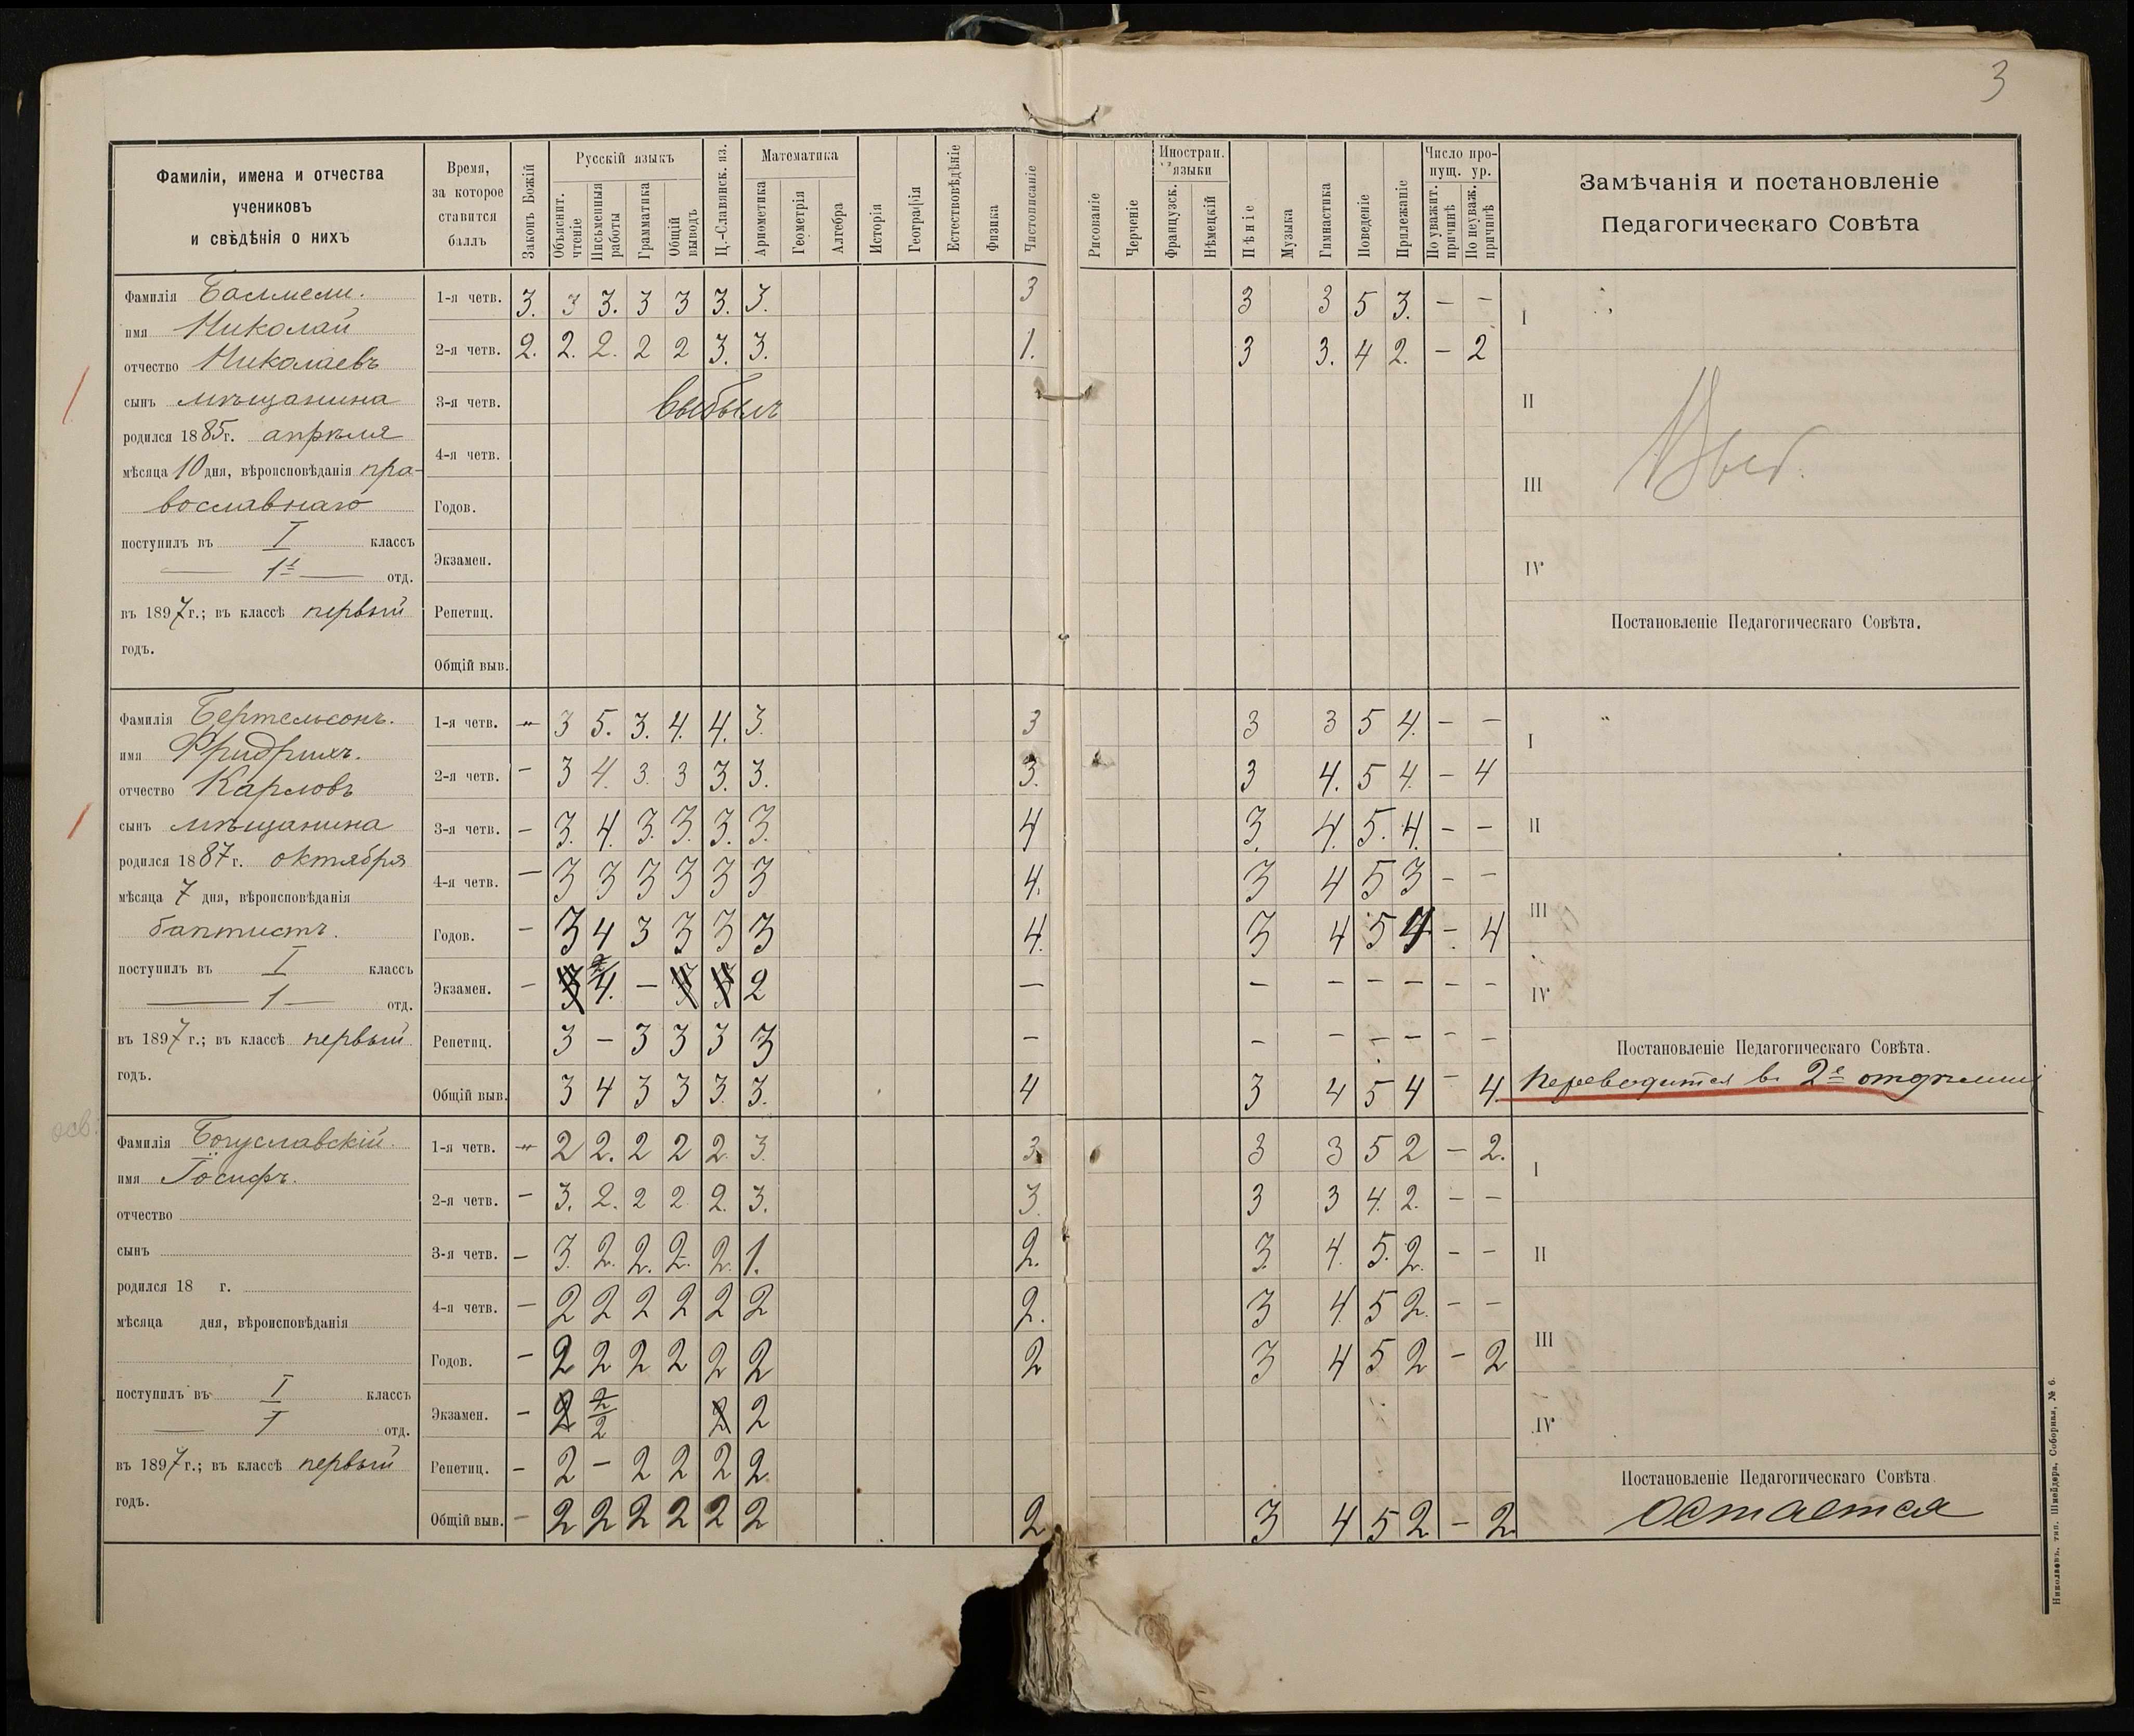 3
Фамиліи, имена и отчества
учениковъ
и свѣдѣнія о нихъ
Время,
за которое
ставится
баллъ
Законъ Божій
Русскій языкъ
Объяснит.
чтеніе
Письменныя
работы
Грамматика
Общій
выводъ
Ц.-Славянск. яз.
Математика
Ариѳметика
Геометрія
Алгебра
Исторія
Географія
Естествовѣдѣніе
Физика
Чистописаніе
Рисованіе
Черченіе
Иностран.
языки
Французск.
Нѣмецкій
Пѣніе
Музыка
Гимнастика
Поведеніе
Прилежаніе
Число про-
пущ. ур.
По уважит.
причинѣ
По неуваж.
причинѣ
Замѣчанія и постановленіе
Педагогическаго Совѣта
Фамилія Баллмели.
имя Николай
отчество Николаевъ
сынъ мѣщанина
родился 1885г. апрѣля
мѣсяца 10 дня, вѣроисповѣданія пра-
вославнаго
поступилъ въ I классъ
1е отд.
въ 1897 г.; въ классѣ первый
годъ.
1-я четв. 3. 3 3. 3 3 3. 3. 3 3 3 5 3. — —
2-я четв. 2. 2. 2. 2 2 3. 3. 1. 3 3. 4 2. — 2
3-я четв. выбылъ
4-я четв.
Годов.
Экзамен.
Репетиц.
Общій выв.
I
II
III
Выб.
IV
Постановленіе Педагогическаго Совѣта.
Фамилія Бертельсонъ.
имя Фридрихъ.
отчество Карловъ
сынъ мѣщанина
родился 1887 г. октября
мѣсяца 7 дня, вѣроисповѣданія
баптистъ.
поступилъ въ I классъ
1 отд.
въ 1897 г.; въ классѣ первый
годъ.
1-я четв. — 3 5. 3. 4. 4. 3. 3 3 3 5 4. — —
2-я четв. — 3 4. 3. 3 3. 3. 3. 3 4. 5 4. — 4
3-я четв. — 3. 4. 3. 3. 3. 3. 4 3. 4. 5. 4. — —
4-я четв. — 3 3 3 3 3 3 4. 3 4 5 3 — —
Годов. — 3 4 3 3 3 3 4. 3 4 5 4 — 4
Экзамен. — 3 2/4. — 3 3 2 — — — — — — —
Репетиц. 3 — 3 3 3 3 — — — — — — —
Общій выв. 3 4 3 3 3. 3. 4 3 4 5 4 — 4.
I
II
III
IV
Постановленіе Педагогическаго Совѣта.
Переводится въ 2е отдѣленіе
осв.
Фамилія Богуславскій.
имя Іосифъ.
отчество
сынъ
родился 18 г.
мѣсяца дня, вѣроисповѣданія
поступилъ въ I классъ
I отд.
въ 1897 г.; въ классѣ первый
годъ.
1-я четв. — 2 2. 2 2 2. 3. 3. 3 3 5 2 — 2.
2-я четв. — 3. 2. 2 2 2. 3. 3. 3 3 4. 2. — —
3-я четв. — 3. 2. 2. 2. 2. 1. 2. 3. 4. 5. 2. — —
4-я четв. — 2 2 2 2 2 2 2. 3 4. 5 2. — —
Годов. — 2 2 2 2 2 2 2 3 4 5 2 — 2
Экзамен. — 2 2/2 2 2
Репетиц. — 2 — 2 2 2 2
Общій выв. — 2 2 2 2 2 2 2 3 4 5 2 — 2.
I
II
III
IV
Постановленіе Педагогическаго Совѣта.
Остается
Николаевъ, тип. Шнейдера, Соборная, № 6.